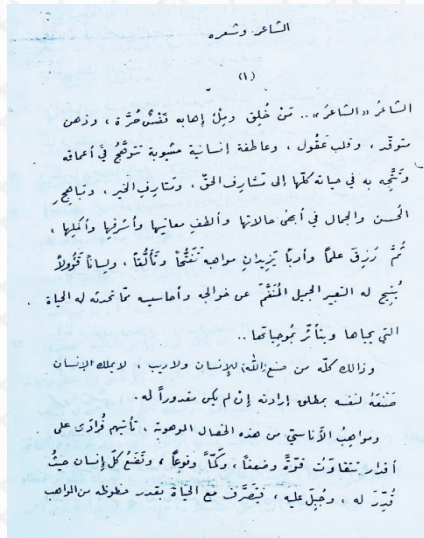 الشاعر وشعره
(١)
الشاعرُ «الشاعرُ».. مَنْ خُلِقَ وملءُ إهابه نَفْسٌ حُرَّة ، وذهن
متوقّد ، وقلب عَقُول ، وعاطفة إنسانية مشبوبة تتوهَّجُ في أعماقه
وتَتَّجِه به في حياته كلّها إلى مَشَارِف الحقّ ، ومَشَارِفِ الخير ، ومَبَاهِجِ
الحُسنِ والجمال في أبهى حالاتها وألطفِ معانيها وأشرفِها وأكملِها ،
ثُمَّ رُزِقَ علماً وأدباً يَزِيدانِ مواهبه تَفَتُّحاً وتَأَلُّقاً ، ولساناً قَؤُولاً
يُتِيح له التعبير الجميل المُنَغَّمَ عن خوالجِه وأحاسيسِه ممّا تُحدثه له الحياة
التي يحياها ويتأثّر بمُوحِياتها ..
وذالك كلّه من صنعِ اللّٰهِ للإنسان ولا ريب ، لا يملك الإنسان
صَنْعَهُ لنفسه بمطلق إرادته إنْ لم يكن مقدوراً له .
ومواهبُ الأناسيّ من هذه الخصال الموهوبة ، تأتيهم فُرادَى على
أقدار تتفاوَتُ قوّةً وضعفاً ، وكمّاً ونوعاً ، وتَضَعُ كلَّ إنسان حيثُ
قُدِّرَ له ، وجُبِلَ عليه ، فيَتصرَّف مع الحياة بقدر حظوظه من المواهب